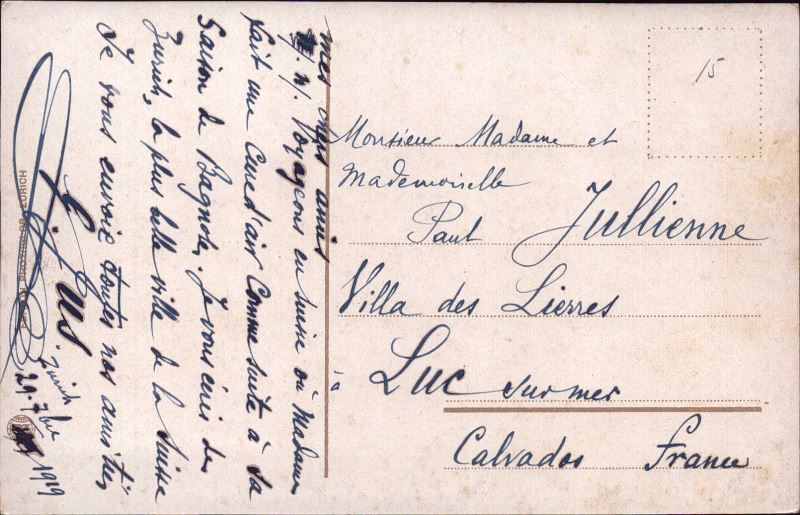 mes chers amis
Voyageons en suisse où Madame
fait une Cure d'air Comme suite à sa
Saison de Bagnole. Je vous écris de
Zurich, la plus belle ville de la Suisse
Je vous envoie toutes nos amitiés
Zurich
29. 7bre
1919
ZURICH
15
Monsieur Madame et
Mademoiselle
Paul Jullienne
Villa des Lierres
à Luc sur mer
Calvados France